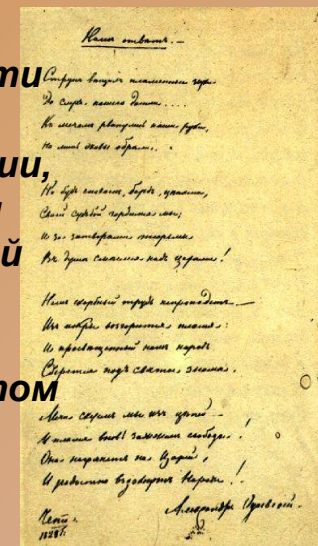 ти
ии,
й
том
Нашъ отвѣтъ. —
Струнъ вѣщихъ пламенные звуки
До слуха нашего дошли....
Къ мечамъ рванулись наши руки,
Но лишь оковы обрѣли.
Но будь спокоенъ, бардъ, цѣпями,
Своей судьбой гордимся мы;
И за затворами тюрьмы
Въ душѣ смѣемся надъ царями!
Нашъ скорбный трудъ не пропадетъ —
Изъ искры возгорится пламя:
И просвѣщенный нашъ народъ
Сберется подъ святое знамя.
Мечи скуемъ мы изъ цѣпей
И пламя вновь зажжемъ свободы.
Она нагрянетъ на Царей,
И радостно вздохнутъ Народы!
Александръ Одоевскій.
Чита.
1828 г.